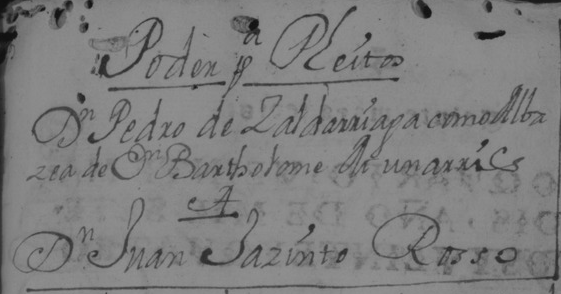 Poder pª Pleitos
Dn Pedro de Zaldarriaga como Alba
zea de Dn Bartholome de
A
Dn Juan Jazinto Rosso